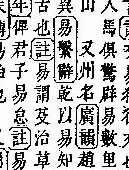 人馬俱驚辟易數里
山又州名廣韻趙
異易繫辭乾以易知
古也註易謂芟治草
年俾君子易怠註易